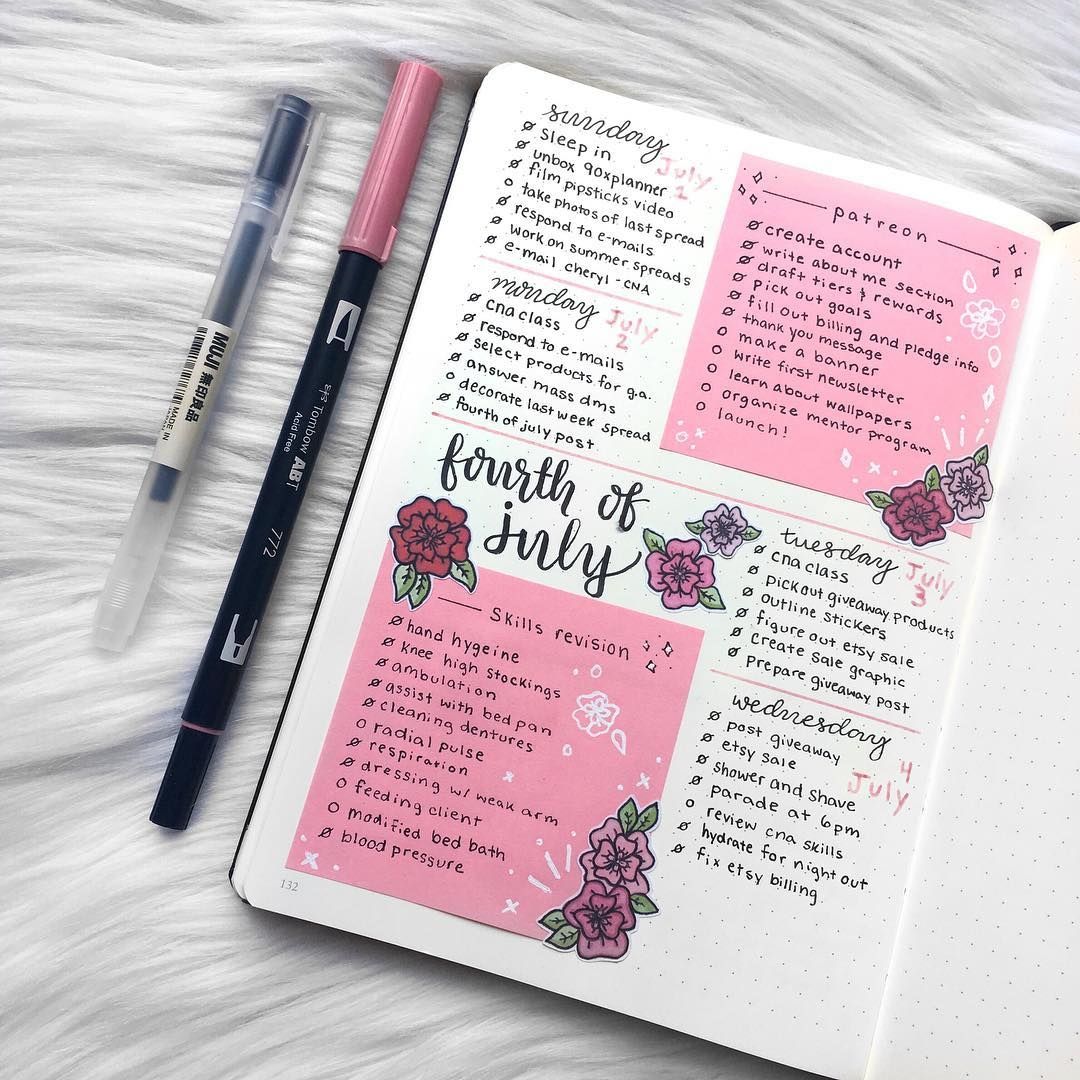 MUJI 無印良品
MADE IN
Tombow ABT
Acid Free
772
sunday
July
1
ø sleep in
ø unbox 90xplanner
ø film pipsticks video
o take photos of last spread
ø respond to e-mails
ø work on summer spreads
ø e-mail cheryl - CNA
monday
July
2
ø cna class
ø respond to e-mails
ø select products for g.a.
ø answer mass dms
o decorate last week spread
ø fourth of july post
patreon
ø create account
ø write about me section
ø draft tiers & rewards
ø pick out goals
ø fill out billing and pledge info
ø thank you message
o make a banner
o write first newsletter
o learn about wallpapers
o organize mentor program
o launch!
fourth of
july
tuesday
July
3
ø cna class
ø pick out giveaway products
ø outline stickers
ø figure out etsy sale
ø create sale graphic
ø prepare giveaway post
skills revision
ø hand hygeine
ø knee high stockings
ø ambulation
ø assist with bed pan
ø cleaning dentures
o radial pulse
ø respiration
ø dressing w/ weak arm
o feeding client
o modified bed bath
ø blood pressure
wednesday
4
July
ø post giveaway
ø etsy sale
ø shower and shave
ø parade at 6pm
o review cna skills
ø hydrate for night out
ø fix etsy billing
132